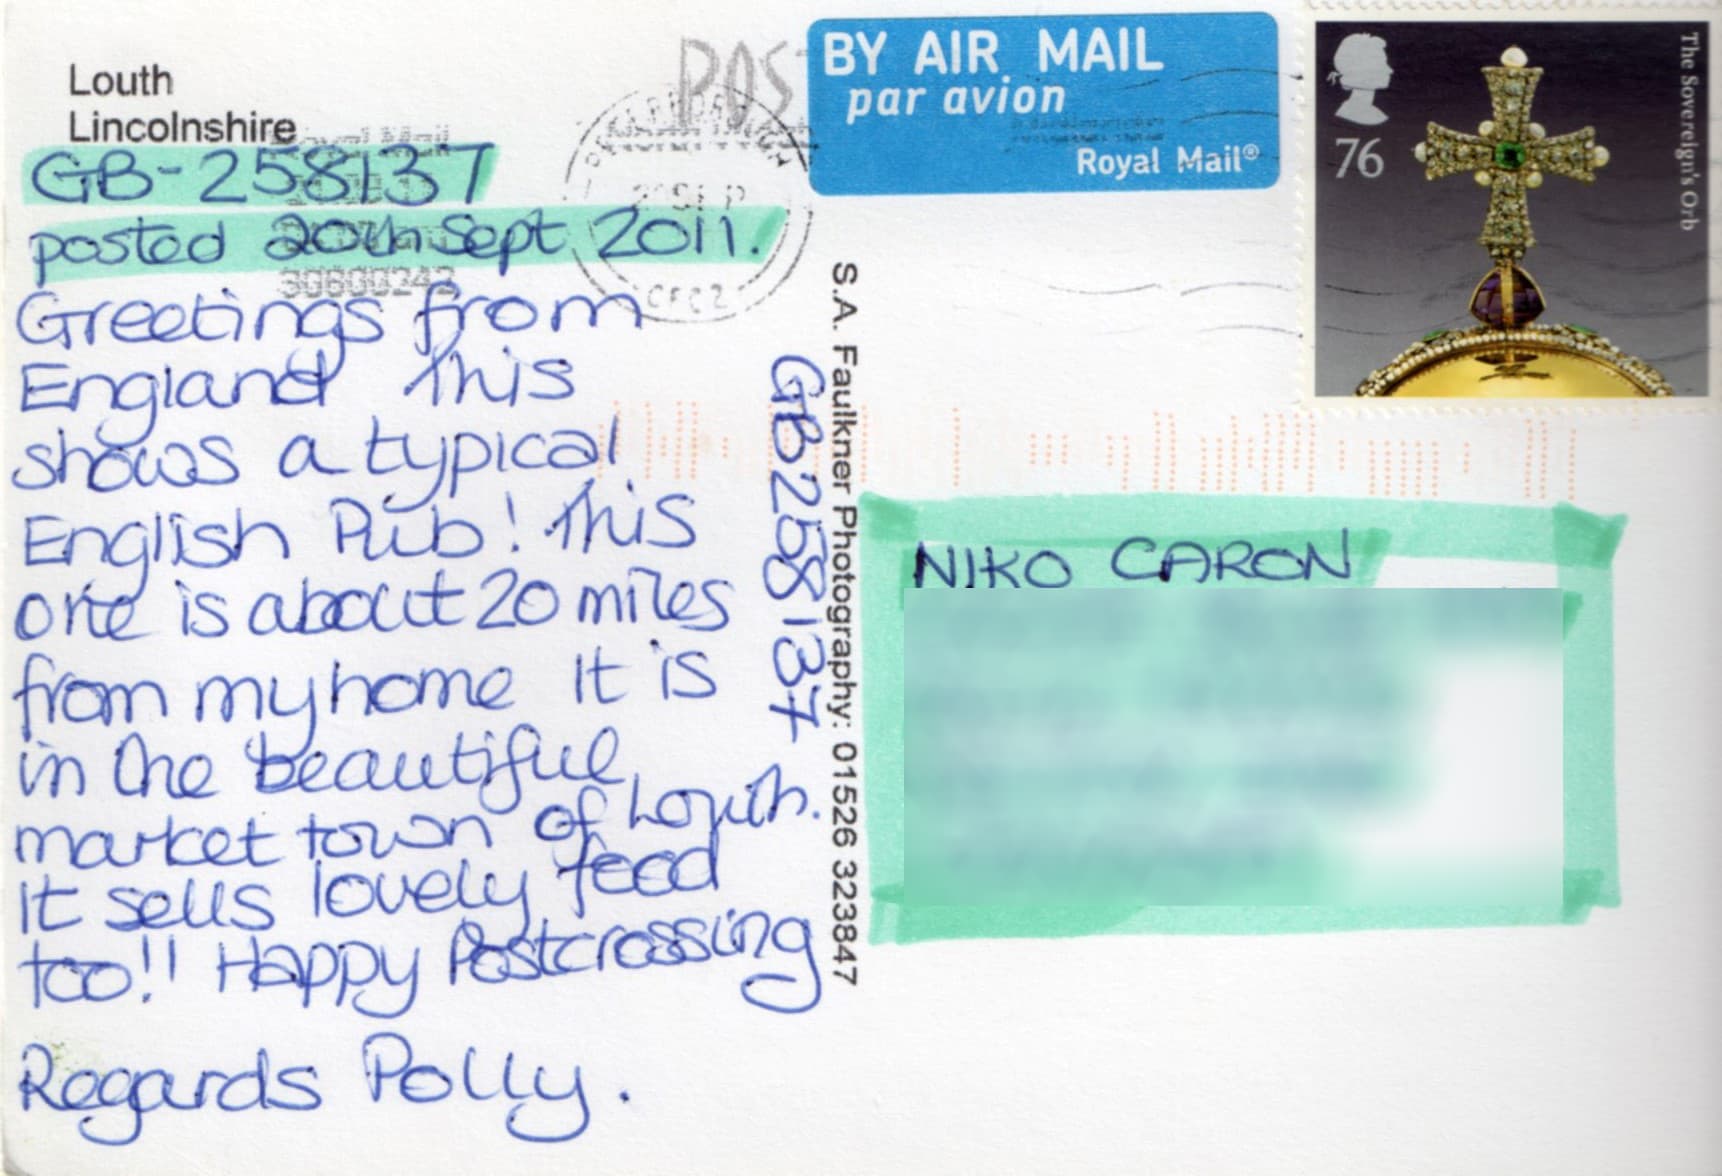 Louth
Lincolnshire
GB-258137
posted 20th Sept 2011.
Greetings from
England This
shows a typical
English Pub! This
one is about 20 miles
from my home It is
in the beautiful
market town of Louth.
It sells lovely food
too!! Happy Postcrossing
Regards Polly.
GB258137
S.A. Faulkner Photography: 01526 323847
BY AIR MAIL
par avion
Royal Mail®
76
The Sovereign's Orb
NIKO CARON
Royal Mail
30800242